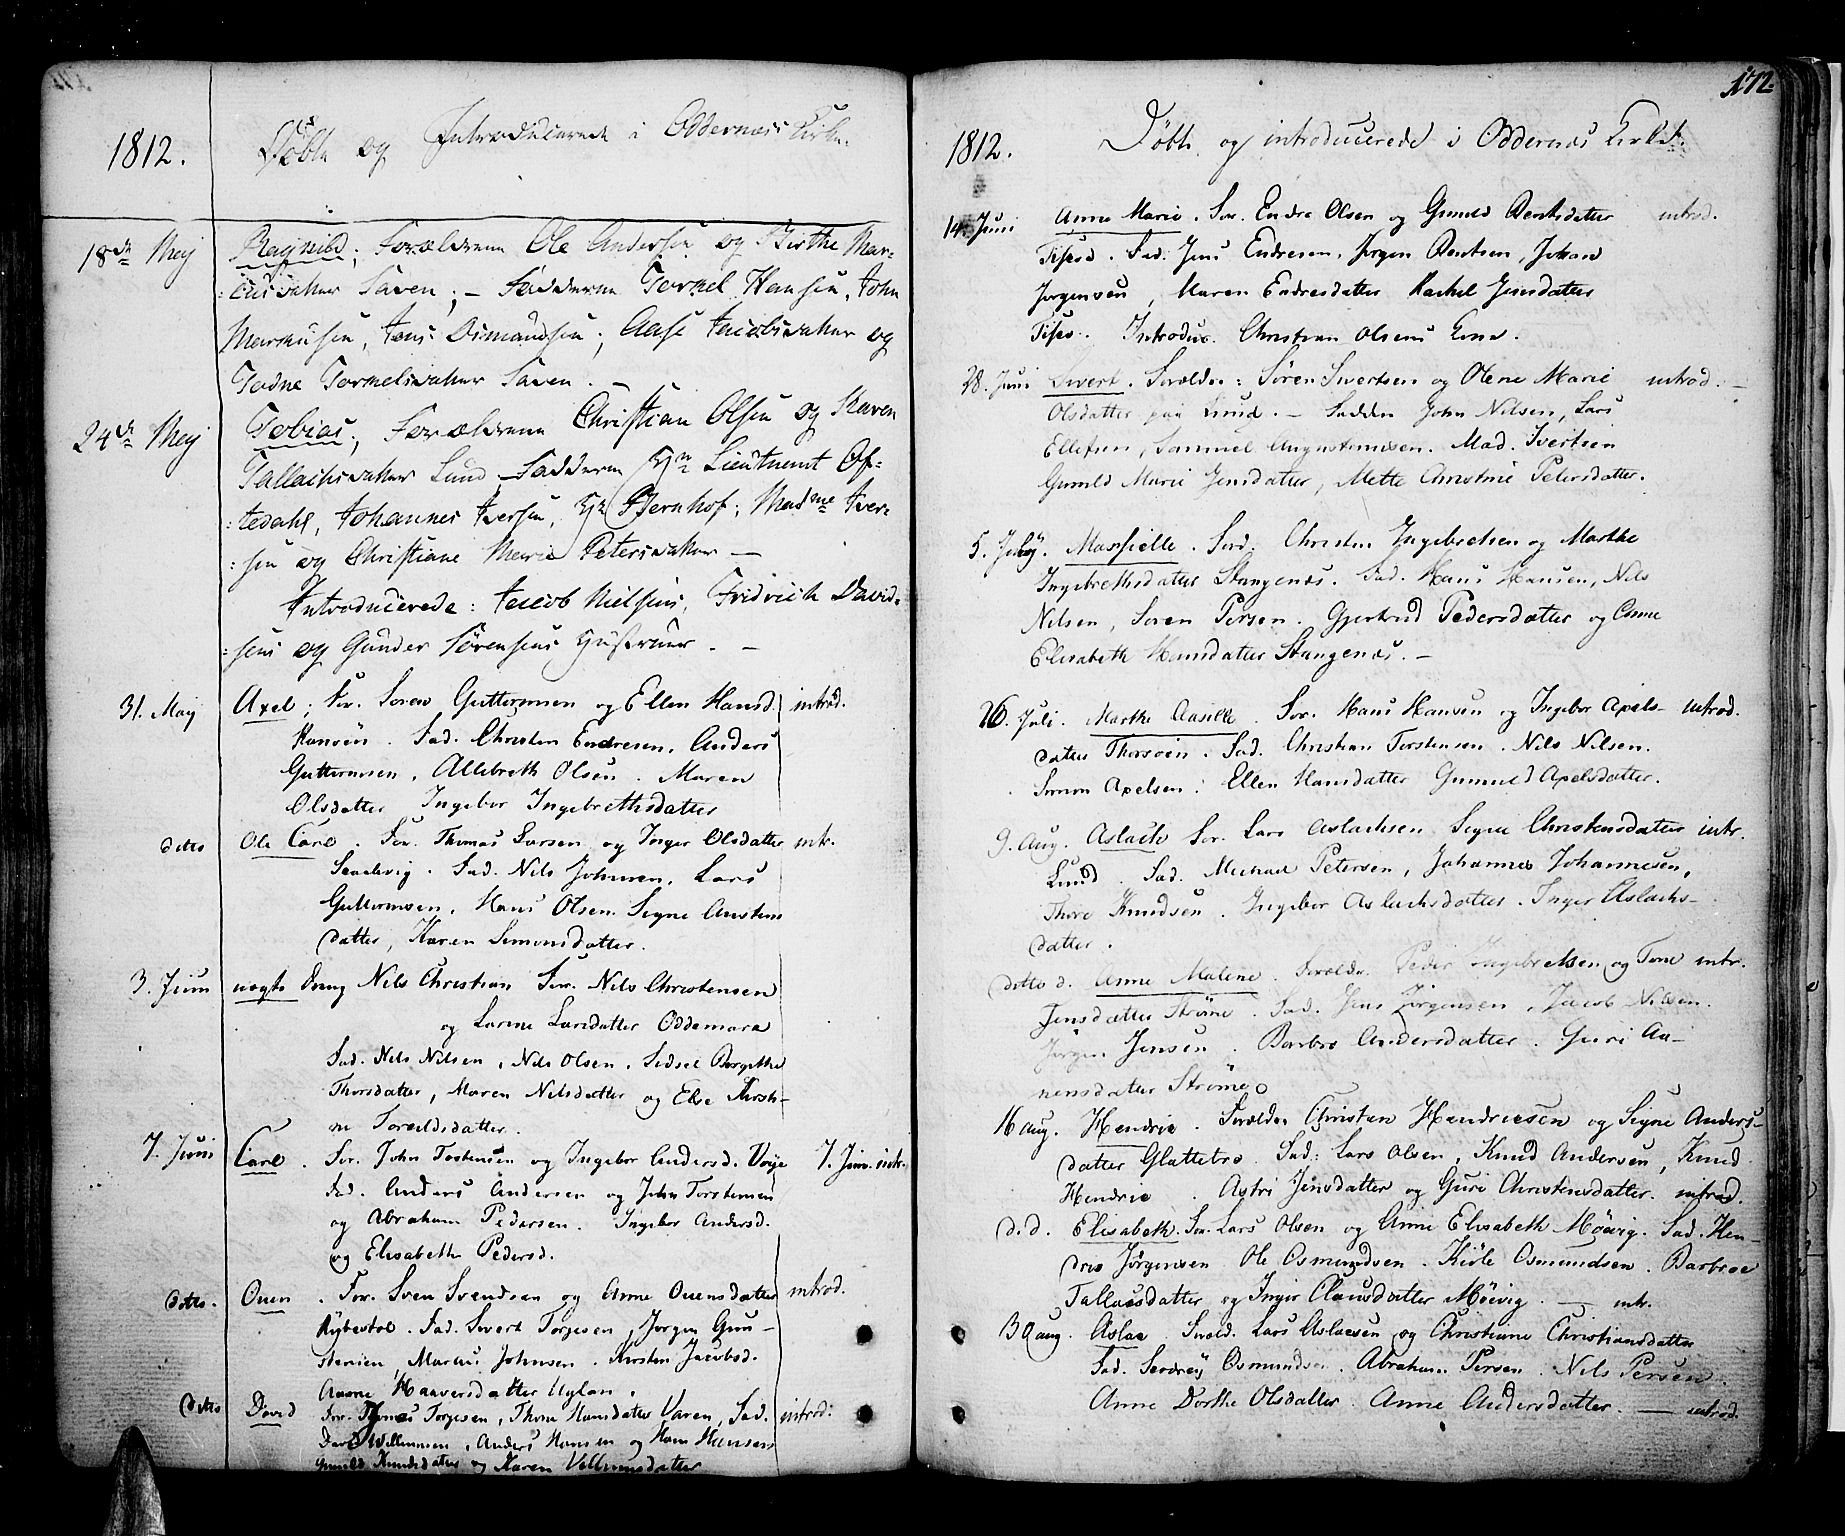 1812. Döbte og Introducerede i Oddernæss Kirke.
18de Maj Ragnild; Forældrene Ole Andersen og Birthe Mar-
:cusdatter Saven; – Fadderne Tormel Hansen, John
Marcussen, Jens Osmundsen; Aase Jacobsdatter og
Todne Tormelsdatter Saven. –
24de Maj Tobias; Forældrene Christian Olsen og Karen
Tallachsdatter Lund, Fadderne Hr. Lieutnant Of-
:tedahl, Johannes Iversen, Hr Bernhof; Madme Iver-
:sen og Christiane Marie Petersdatter –
Introducerede: Jacob Nielsens, Fridrich David-
:sens og Gunder Sörensens Hustruer. –
31. May Axel; For. Soren Guttormsen og Ellen Hansd. introd.
Ransöen. Fad. Christen Endresen, Anders
Guttormsen, Allebreth Olsen. Maren
Olsdatter Ingebor Ingebrethsdatter
ditto Ole Carl. For. Thomas Larsen og Inger Olsdatter intr.
Fad. Nils Johnsen, Lars
Guttormsen, Hans Olsen. Signe
datter, Karen Simonsdatter.
3. Juni uægte Dreng Nils Christian For. Nils Christensen
og Larsdatter Oddemarc
Fad. Nils Nilsen, Nils Olsen, Sidsel Borgithe
Thorsdatter, Maren Nilsdatter og Else Kirsti-
ne Torkildsdatter.
7. Juni Carl. For. John Tostensen og Ingebor Andersd. Voje 7. Jun. intr.
Fad. Anders Andersen og John Torstensen
og Abraham Pedersen. Ingebor Andersd.
og Elisabeth Pedersd.
ditto. Onen. For. Sven Svendsen og Anne Onensdatter introd.
Fad. Sivert Torjesen, Jorgen Gun-
dersen, Marcus Johnsen. Kirsten Jacobsd.
Haaversdatter Uglan.
ditto David For. Torjesen, Thone Hansdatter Varen, Fad. introd:
David Villumsen, Anders Hansen og Hans Hansen
Gunild Knudsdatter og Karen Vellumsdatter
172.
1812. Döbte og introducerede i Oddernæs Kirke.
14. Juni Anne Marie. For. Endre Olsen og Gunild Berntsdatter introd.
Fad: Jens Endresen, Jörgen Berntsen, Johan
Jorgensen, Maren Endresdatter Rachel Jensdatter
Introduc. Christian Olsens Kone.
28. Juni Sivert. Forældre: Sören Sivertsen og Olene Marie introd. –
Olsdatter paa Lund. – Fadder John Nilsen, Lars
Ellefsen, Samuel Augustinusen. Mad. Ivertsen
Gunild Marie Jensdatter, Mette Christine Petersdatter.
5. July. For. Christen Ingebretsen og Marthe
Ingebrethsdatter Stangenæs. Fad. Hans Hansen, Nils
Nilsen, Soren Persen. Gjertrud Pedersdatter og Anne
Elisabeth Hansdatter Stangenæs. –
26. Juli. Marthe Aasille. For. Hans Hansen og Ingebor Axels- introd.
datter Thorsöen. Fad. Christian Torstensen. Nils Nilsen.
Simon Axelsen: Ellen Hansdatter Gunuld Axelsdatter.
9. Aug. Aslach For. Lars Aslachsen Signe Christensdatter intr.
Lund. Fad. Michael Petersen, Johannes Johannesen,
Thore Knudsen. Ingebor Aslachsdatter. Inger Aslachs-
datter.
ditto d. Anne Malene. Forældr. Peder Ingebretsen og Tone intr.
Jensdatter Ströme. Fad. Jens Jörgensen, Jacob Nilsen.
Jörgen Jensen. Barbro Andersdatter. Guri Aa-
nensdatter Ströme.
16 aug. Hendric. Forældre Christen Hendricsen og Signe Anders-
datter Glattetre. Fad: Lars Olsen, Knud Andersen, Knud
Hendric. Astri Jensdatter og Guri Christensdatter. introd.
d. d. Elisabeth. For. Lars Olsen og Anne Elisabeth Möevig. Fad. Hen-
dric Jörgensen Ole Osmundsen. Kiöle Osmundsen. Barbroe
Tallacsdatter og Inger Clausdatter Möevig. – intr.
30 aug. Aslac. Foræld. Lars Aslacsen og Christiane Christiansdatter
Fad. Osmundsen. Abraham Persen. Nils Persen.
Anne Dorthe Olsdatter. Anne Andersdatter. – introd.